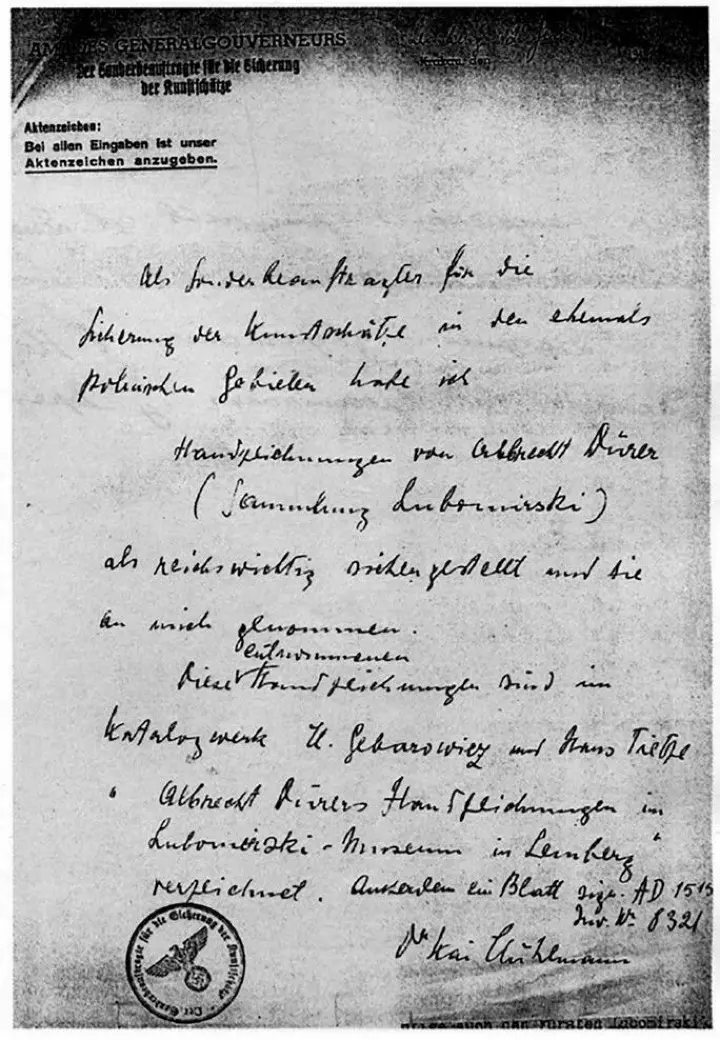 AMT DES GENERALGOUVERNEURS
Der Sonderbeauftragte für die Sicherung
der Kunstschätze
Krakau, den
Aktenzeichen:
Bei allen Eingaben ist unser
Aktenzeichen anzugeben.
Als Sonderbeauftragter für die
Sicherung der Kunstschätze in den ehemals
polnischen Gebieten habe ich
Handzeichnungen von Albrecht Dürer
(Sammlung Lubomirski)
als reichswichtig sichergestellt und sie
an mich genommen.
entnommenen
Diese Handzeichnungen sind im
Katalogwerk H. Gebarowicz und Hans Tietze
" Albrecht Dürers Handzeichnungen im
Lubomirski-Museum in Lemberg"
verzeichnet. Ausserdem ein Blatt sign. AD 1515
Inv. Nr. 8321
Dr Kai Mühlmann
Der Sonderbeauftragte für die Sicherung der Kunstschätze
auch den Fürsten Lubomirski